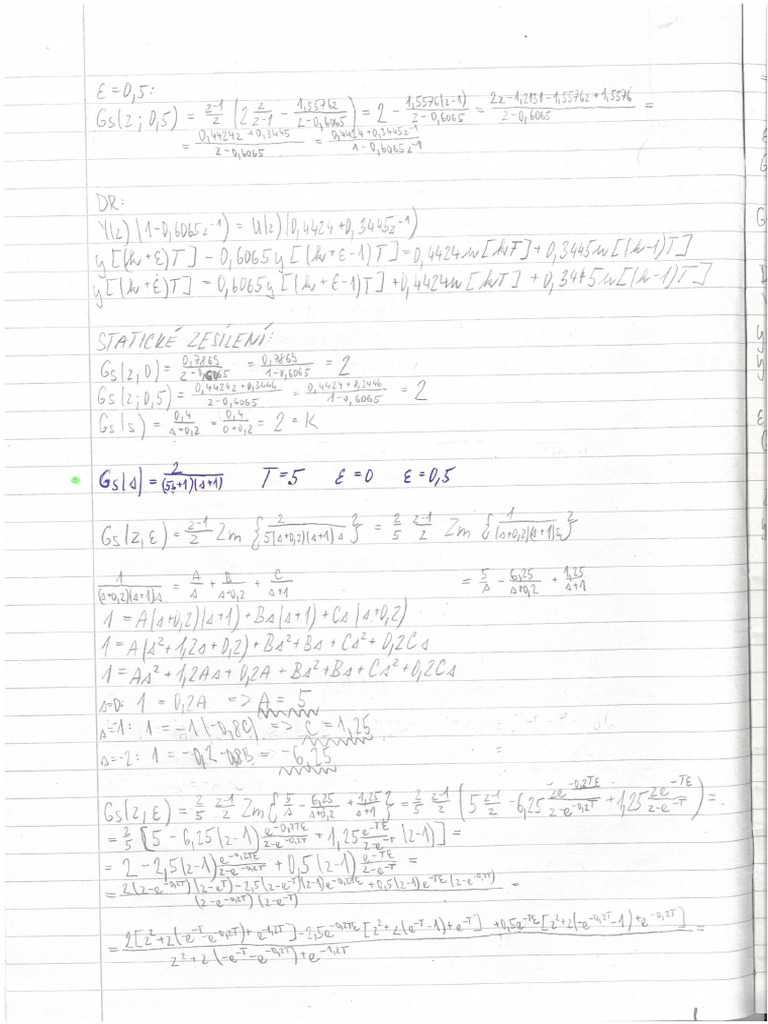 ε=0,5:
Gs(z;0,5) = \frac{z-1}{z} (2\frac{z}{z-1} - \frac{1,5576z}{z-0,6065}) = 2 - \frac{1,5576(z-1)}{z-0,6065} = \frac{2z-1,2131-1,5576z+1,5576}{z-0,6065} =
= \frac{0,4424z+0,3445}{z-0,6065} = \frac{0,4424+0,3445z^{-1}}{1-0,6065z^{-1}}
DR:
Y(z) (1-0,6065z^{-1}) = U(z) (0,4424+0,3445z^{-1})
y[(k+ε)T] - 0,6065y[(k+ε-1)T] = 0,4424u[kT] + 0,3445u[(k-1)T]
y[(k+ε)T] = 0,6065y[(k+ε-1)T] + 0,4424u[kT] + 0,3445u[(k-1)T]
STATICKÉ ZESÍLENÍ:
Gs(z,0) = \frac{0,7869}{z-0,6065} = \frac{0,7869}{1-0,6065} = 2
Gs(z;0,5) = \frac{0,4424z+0,3446}{z-0,6065} = \frac{0,4424+0,3446}{1-0,6065} = 2
Gs(s) = \frac{0,4}{s+0,2} = \frac{0,4}{0+0,2} = 2 = K
Gs(s) = \frac{2}{(5s+1)(s+1)} T=5 ε=0 ε=0,5
Gs(z,ε) = \frac{z-1}{z} Zm {\frac{2}{5(s+0,2)(s+1)s}} = \frac{2}{5} \frac{z-1}{z} Zm {\frac{1}{(s+0,2)(s+1)s}}
\frac{1}{(s+0,2)(s+1)s} = \frac{A}{s} + \frac{B}{s+0,2} + \frac{C}{s+1} = \frac{5}{s} - \frac{6,25}{s+0,2} + \frac{1,25}{s+1}
1 = A(s+0,2)(s+1) + Bs(s+1) + Cs(s+0,2)
1 = A(s²+1,2s+0,2) + Bs²+Bs + Cs²+0,2Cs
1 = As²+1,2As+0,2A + Bs²+Bs+Cs²+0,2Cs
s=0: 1 = 0,2A => A = 5
s=-1: 1 = -1(-0,8C) => C = 1,25
s=-2: 1 = -0,2·0,8B = -6,25
Gs(z,ε) = \frac{2}{5} \frac{z-1}{z} Zm{\frac{5}{s} - \frac{6,25}{s+0,2} + \frac{1,25}{s+1}} = \frac{2}{5} \frac{z-1}{z} (5\frac{z-1}{z} - 6,25\frac{ze^{-0,2Tε}}{z-e^{-0,2T}} + 1,25\frac{ze^{-Tε}}{z-e^{-T}}) =
= \frac{2}{5} [5 - 6,25(z-1)\frac{e^{-0,2Tε}}{z-e^{-0,2T}} + 1,25\frac{e^{-Tε}}{z-e^{-T}}(z-1)] =
= 2 - 2,5(z-1)\frac{e^{-0,2Tε}}{z-e^{-0,2T}} + 0,5(z-1)\frac{e^{-Tε}}{z-e^{-T}} =
= \frac{2(z-e^{-0,2T})(z-e^{-T}) - 2,5(z-e^{-T})(z-1)e^{-0,2Tε} + 0,5(z-1)e^{-Tε}(z-e^{-0,2T})}{(z-e^{-0,2T})(z-e^{-T})} =
= \frac{2[z²+z(-e^{-T}-e^{-0,2T})+e^{-1,2T}] - 2,5e^{-0,2Tε}[z²+z(-e^{-T}-1)+e^{-T}] + 0,5e^{-Tε}[z²+z(-e^{-0,2T}-1)+e^{-0,2T}]}{z²+z(-e^{-T}-e^{-0,2T})+e^{-1,2T}} =